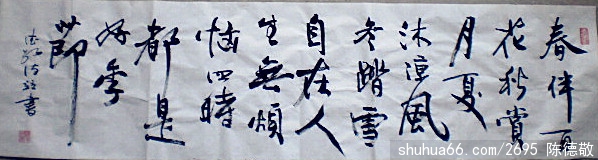 春伴百
花秋赏
月夏
沐凉风
冬踏雪
自在人
生無煩
恼四時
都是
好季
節
書
shuhua66.com/2695 陈德敬